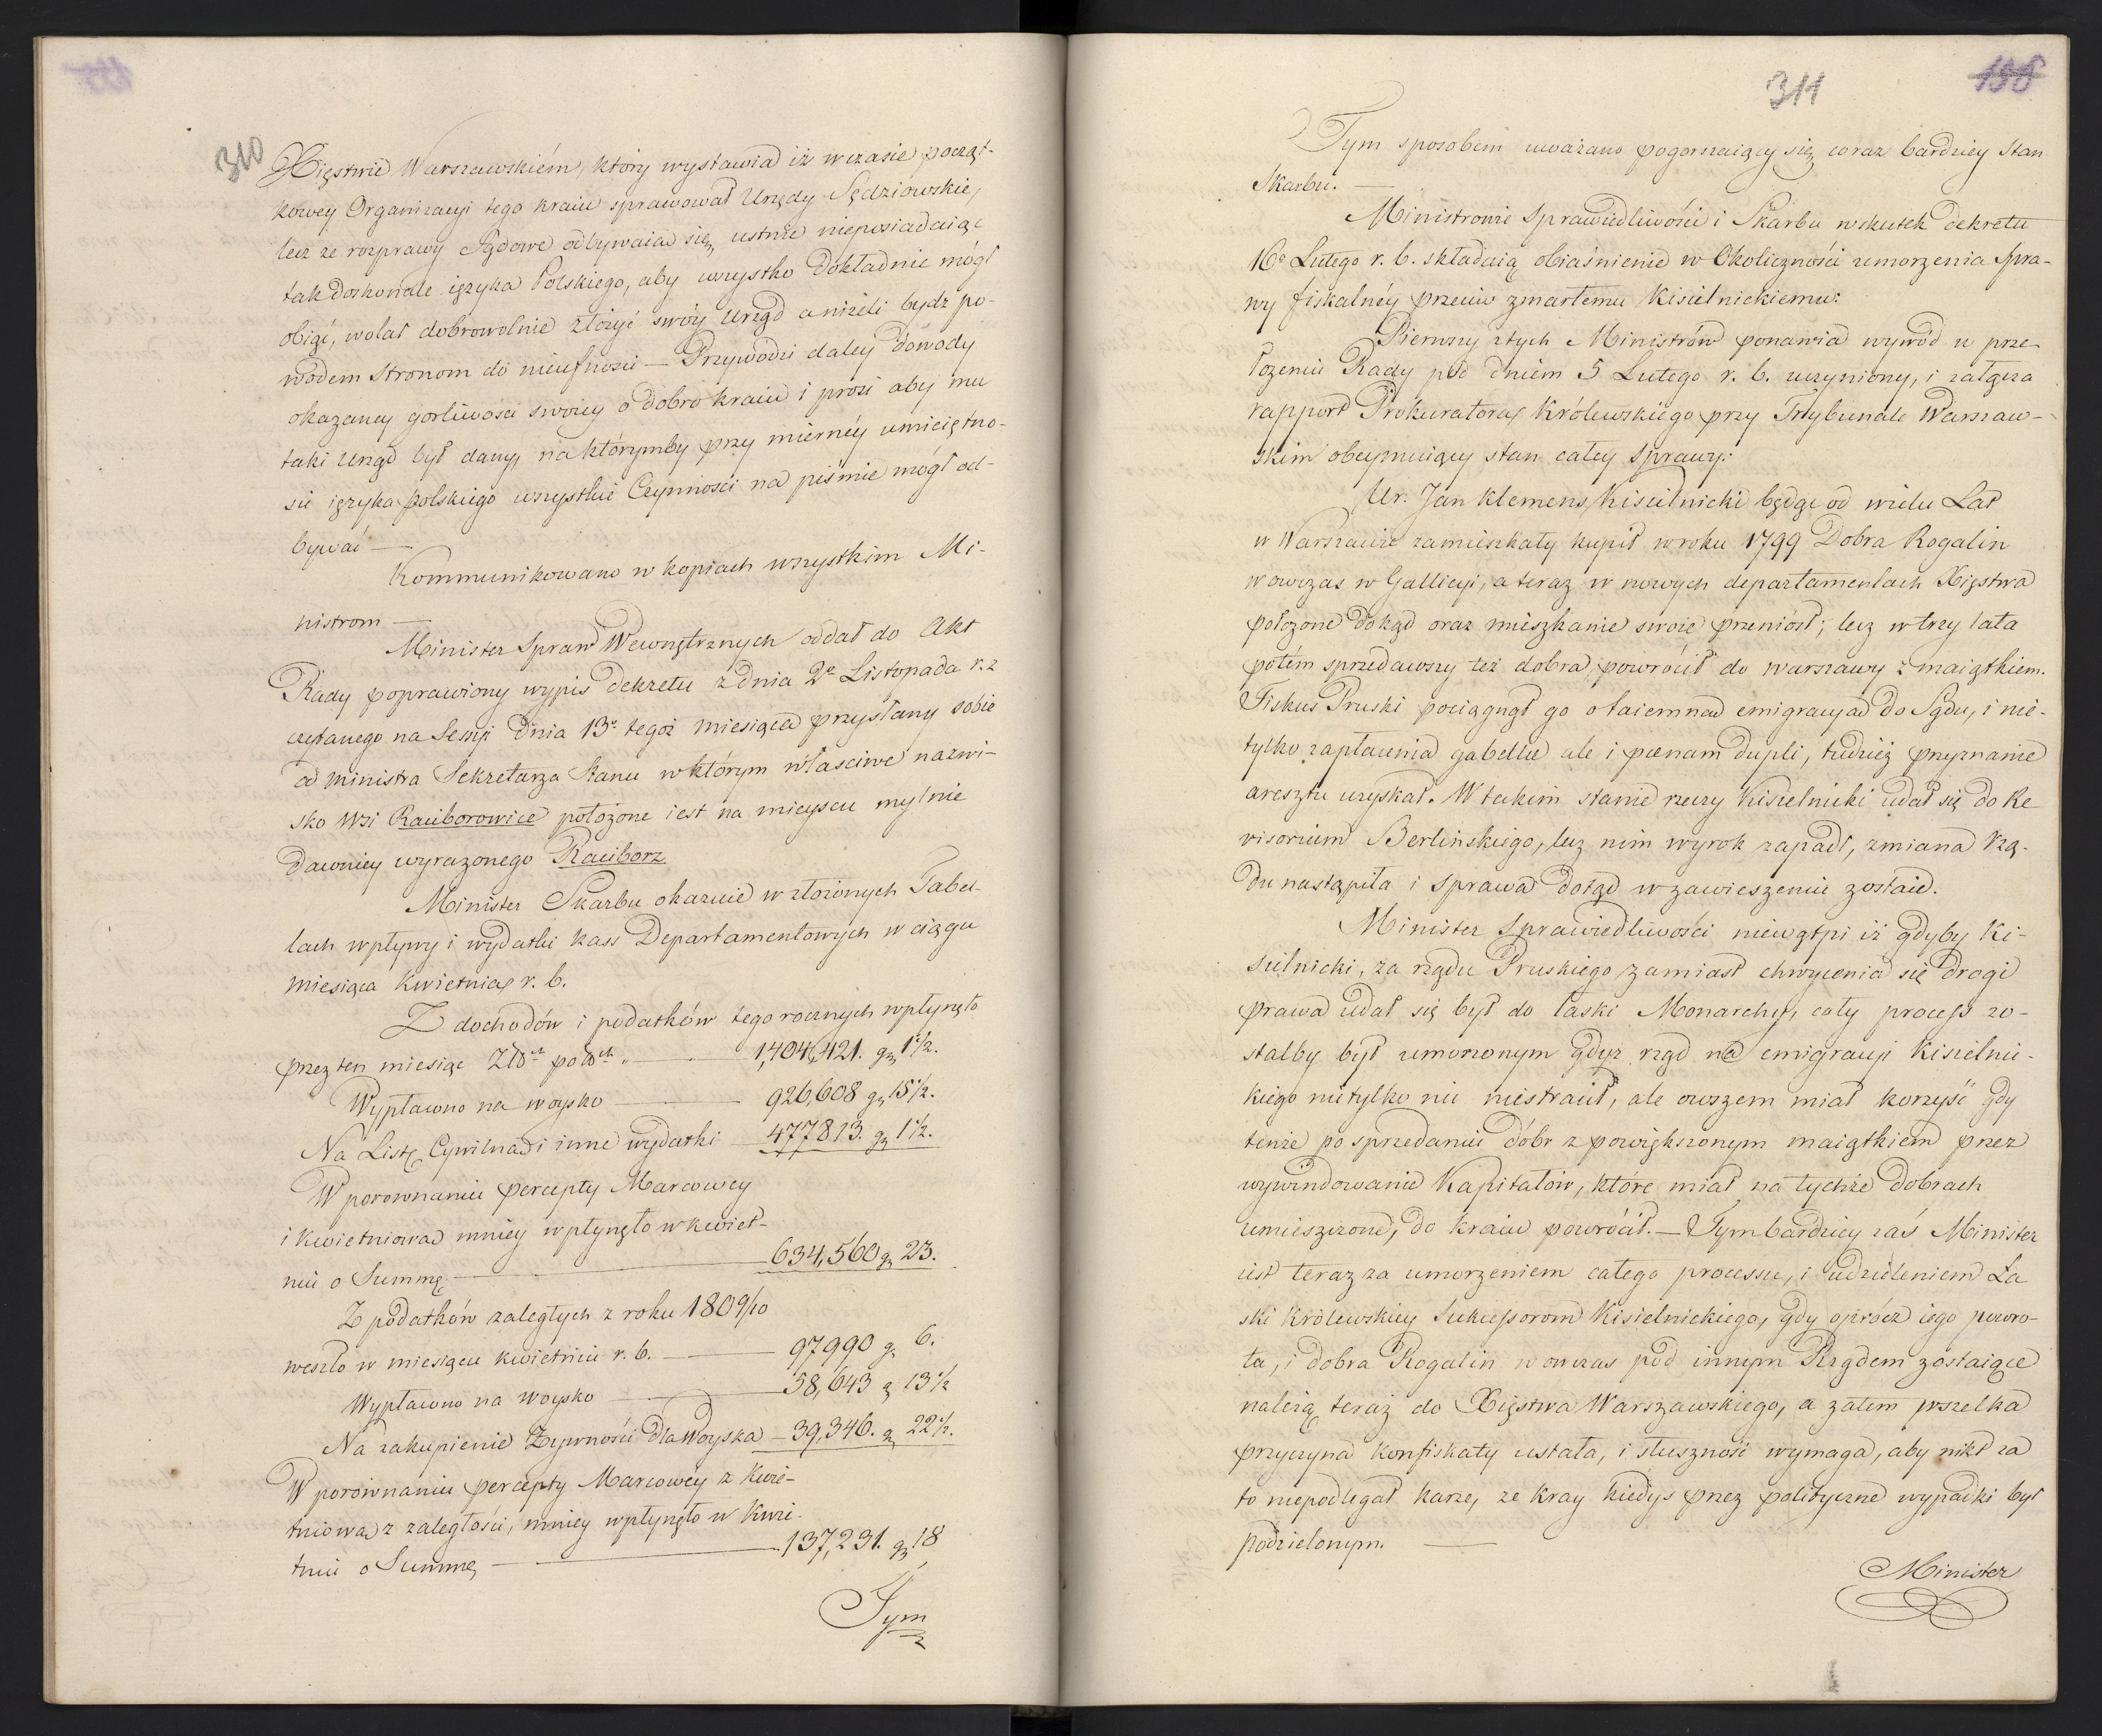 310
Xięstwie Warszawskiém, który wystawia iż w czasie począt-
kowey Organizacyi tego kraiu sprawował Urzędy Sędziowskie,
lecz ze rozprawy Sądowe odbywaią się ustnie nieposiadaiąc
tak doskonale ięzyka Polskiego, aby wszystko dokładnie mógł
obiąć, wolał dobrowolnie złożyć swóy Urząd aniżeli bydz po-
wodem Stronom do nieufności — Przywodzi daley dowody
okazaney gorliwosci swoiey o dobro kraiu i prosi aby mu
taki Urząd był dany, na którymby przy mierney umieiętno-
sci ięzyka polskiego wszystkie Czynnosci na piśmie mógł od-
bywać —
Kommunikowano w kopiach wszystkim Mi-
nistrom —
Minister Spraw Wewnętrznych oddał do Akt
Rady poprawiony wypis dekretu z dnia 2o Listopada r. z
czytanego na Sessyi dnia 13o tegoż miesiąca przysłany sobie
od Ministra Sekretarza Stanu w którym właściwe nazwi-
sko wsi Raciborowice położone iest na mieyscu mylnie
dawniey wyrazonego Raciborz.
Minister Skarbu okazuie w złożonych Tabel-
lach wpływy i wydatki kass Departamentowych w ciągu
miesiąca kwietnia r. b.
Z dochodów i podatków tegorocznych wpłynęło
przez ten miesiąc Złch polch „ — 1,404,421. gr 1 1/2.
Wypłacono na woysko — 926,608 gr 15 1/2.
Na Listę Cywilną i inne wydatki — 477813. gr 1 1/2.
W porownaniu percepty Marcowey
i kwietniowa mniey wpłynęło w kwiet-
niu o Summę — 634,560 gr 23.
Z podatków zaległych z roku 1809/10
weszło w miesiącu kwietniu r. b. — 97990 gr 6.
Wypłacono na woysko — 58,643 gr 13 1/2
Na zakupienie Zywności dla Woyska — 39,346. gr 22 1/2.
W porównaniu percepty Marcowey z Kwie-
tniową z zaległości, mniey wpłynęło w Kwie-
tniu o Summę — 137,231. gr 18
Tym
311
158
Tym sposobem uważano pogorszaiący się coraz bardziey stan
Skarbu. —
Ministrowie Sprawiedliwości i Skarbu wskutek dekretu
16o Lutego r. b. składaią obiaśnienie w Okoliczności umorzenia Spra-
wy fiskalnéy przeciw zmarłemu Kisielnickiemu:
Pierwszy z tych Ministrów ponawia wywód w prze-
łożeniu Rady pod dniem 5 Lutego r. b. uczyniony, i załącza
rapport Prokuratora Królewskiego przy Trybunale Warszaw-
skim obeymuiący stan całey Sprawy:
Ur. Jan Klemens Kisielnicki będąc od wielu Lat
w Warszawie zamieszkały kupił w roku 1799 Dobra Rogalin
wowczas w Gallicyi, a teraz w nowych departamentach Xięstwa
położone dokąd oraz mieszkanie swoie przeniósł; lecz w trzy lata
potém sprzedawszy też dobra, powrócił do Warszawy z maiątkiem.
Fiskus Pruski pociągnął go o taiemną emigracyą do Sądu, i nie-
tylko zapłacenia gabellae ale i poenam dupli, tudzież przyznanie
aresztu uzyskał. W takim stanie rzeczy Kisielnicki udał się do Re-
visorium Berlińskiego, lecz nim wyrok zapadł, zmiana Rzą-
du nastąpiła i Sprawa dotąd w zawieszeniu zostaie.
Minister Sprawiedliwości niewątpi iż gdyby Ki-
sielnicki, za rządu Pruskiego zamiast chwycenia się drogi
prawa udał się był do łaski Monarchy, cały process zo-
stałby był umorzonym gdyż rząd na emigracyi Kisielnic-
kiego nietylko nic niestracił, ale owszem miał korzyść gdy
tenże po sprzedaniu dóbr z powiększonym maiątkiem przez
wywindowanie Kapitałów, które miał na tychże dobrach
umieszczone, do kraiu powrócił. — Tym bardziey zaś Minister
iest teraz za umorzeniem całego processu, i udzieleniem Ła
ski Królewskiey Sukcessorom Kisielnickiego, gdy oprócz iego powro-
tu, i dobra Rogalin wowczas pod innym Rządem zostaiące
należą teraz do Xięstwa Warszawskiego, a zatem wszelka
przyczyna konfiskaty ustała, i słuszność wymaga, aby nikt za
to niepodlegał karze, ze Kray kiedyś przez polityczne wypadki był
podzielonym. —
Minister